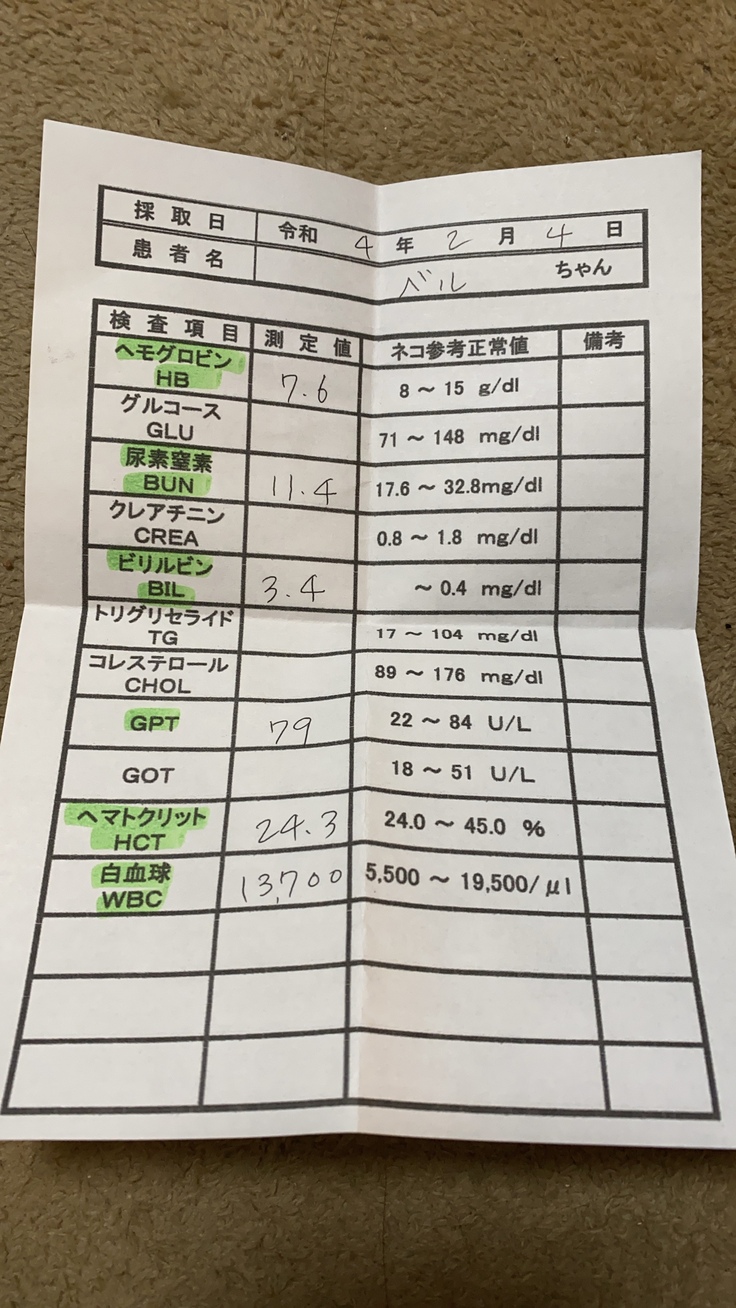 採取日 令和 4 年 2 月 4 日
患者名 ベル ちゃん
検査項目 測定値 ネコ参考正常値 備考
ヘモグロビン
HB 7.6 8 ～ 15 g/dl
グルコース
GLU 71 ～ 148 mg/dl
尿素窒素
BUN 11.4 17.6 ～ 32.8mg/dl
クレアチニン
CREA 0.8 ～ 1.8 mg/dl
ビリルビン
BIL 3.4 ～ 0.4 mg/dl
トリグリセライド
TG 17 ～ 104 mg/dl
コレステロール
CHOL 89 ～ 176 mg/dl
GPT 79 22 ～ 84 U/L
GOT 18 ～ 51 U/L
ヘマトクリット
HCT 24.3 24.0 ～ 45.0 %
白血球
WBC 13,700 5,500 ～ 19,500/μl